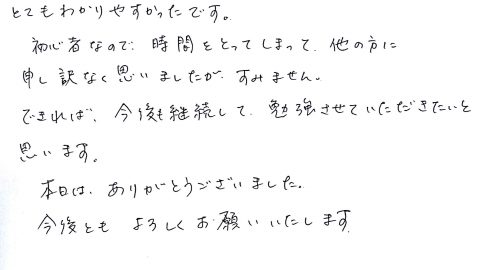 とてもわかりやすかったです。
初心者なので、時間をとってしまって、他の方に
申し訳なく思いましたが、すみません。
できれば、今後も継続して、勉強させていただきたいと
思います。
本日は、ありがとうございました。
今後とも よろしくお願いいたします